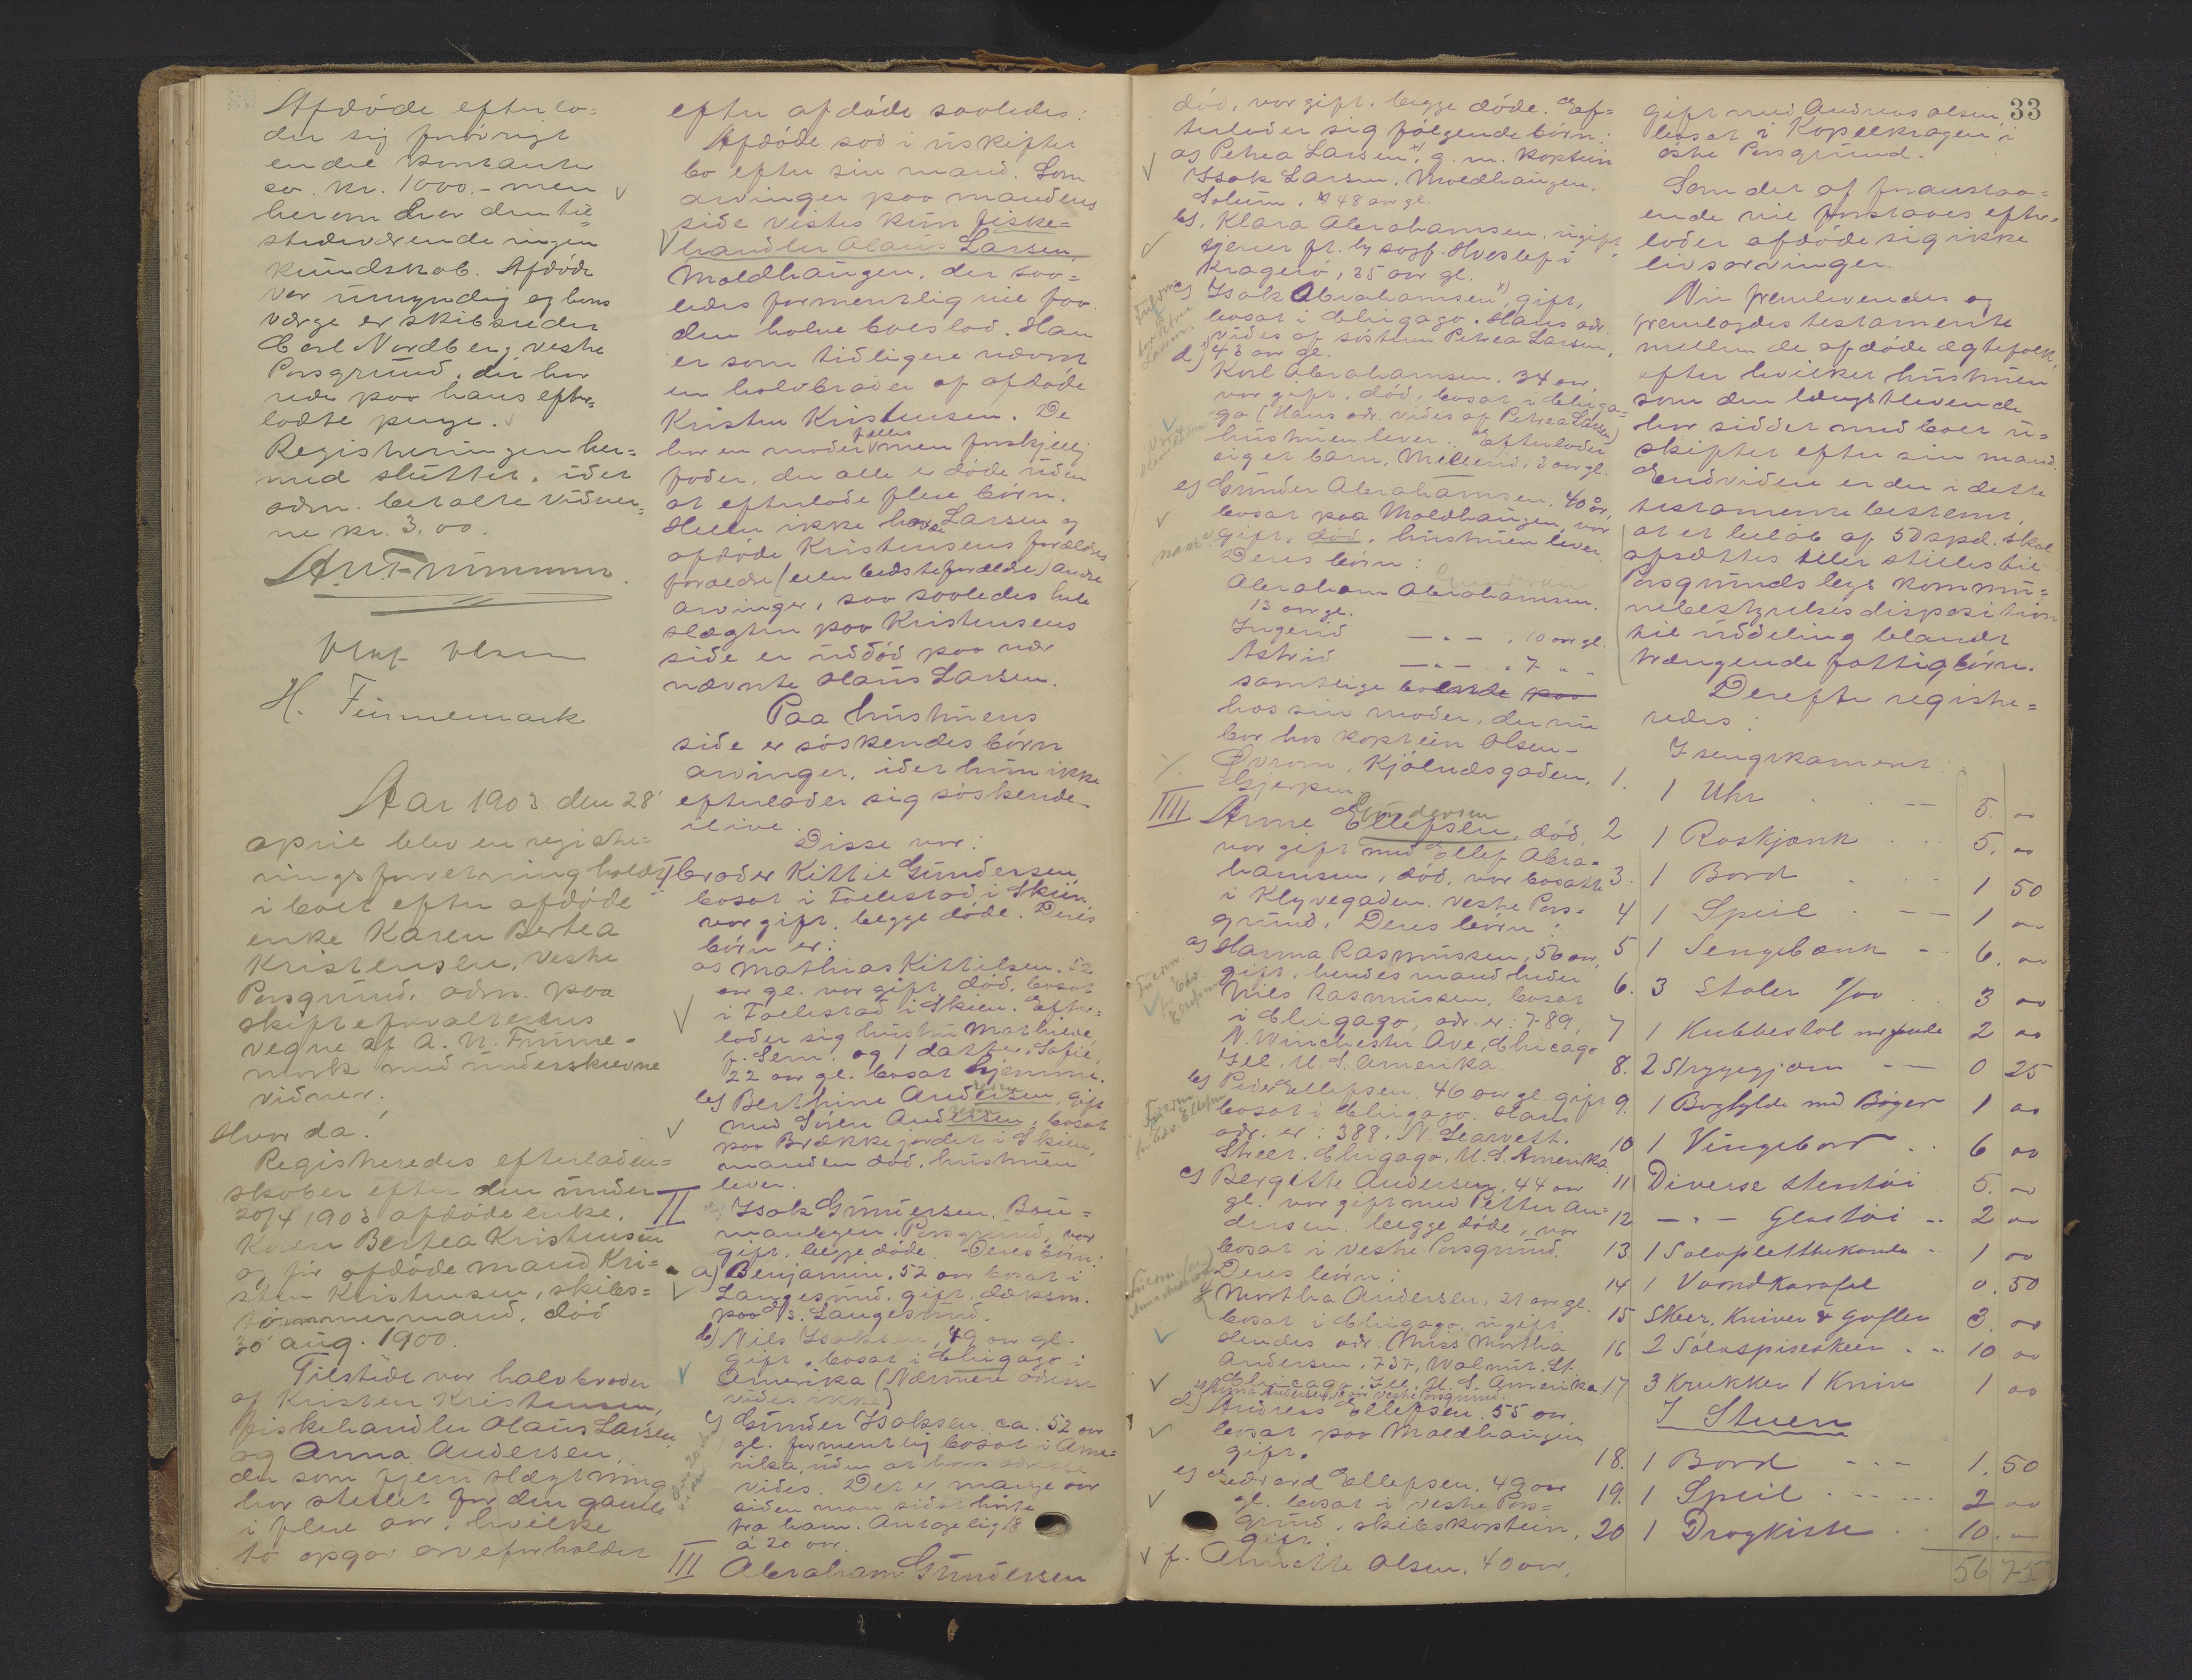 Afdøde efterlo=
der sig forøvrigt
endel kontante
ca. kr. 1000.- men
herom har den til=
stedeværende ingen
kundskab. Afdøde
var umyndig og hans
værge er skibsreder
Carl Nordberg, vestre
Porsgrund, der har
rede paa hans efter=
ladte penge.
Registreringen her=
med sluttet, idet
adm. betalte vidner=
ne kr. 3.00.
Olaf Olsen
H. Finnemark
Aar 1903 den 28'
april blev en registre=
ringsforretning holdt
i boet efter afdøde
enke Karen Bertea
Kristensen, vestre
Porsgrund, adm. paa
skifteforvalterens
vegne af A. N. Finne=
mark med underskrevne
vidner.
Hvor da:
Registreredes efterladen=
skaber efter den under
20/4 1903 afdøde enke,
Karen Bertea Kristensen
og før afdøde mand Kri=
sten Kristensen, skibs=
tømmermand, død
30' aug. 1900.
Tilstede var halvbroder
af Kristen Kristensen,
fiskehandler Olaus Larsen
og Anna Andersen,
der som fjern slægtning
har stellet for den gamle
i flere aar, hvilke
to opgav arveforholdet
efter afdøde saaledes:
Afdøde sad i uskiftet
bo efter sin mand. Som
arvinger paa mandens
side vistes kun fiske=
handler Olaus Larsen,
Moldhaugen, der saa=
ledes formentlig vil faa
den halve boeslod. Han
er som tidligere nævnt
en halvbroder af afdøde
Kristen Kristensen. De
har en moder fælles men forskjellig
fader, der alle er døde uden
at efterlade flere børn.
Heller ikke havde Larsen og
afdøde Kristensens forældres
forældre (eller bedsteforældre) andre
arvinger, saa saaledes hele
slægten paa Kristensens
side er uddød paa nær
nævnte Olaus Larsen.
Paa hustruens
side er søskendes børn
arvinger, idet hun ikke
efterlader sig søskende
ilive.
Disse var:
I broder Kittil Gundersen
bosat i Faelestad i Skien
var gift, begge døde. Deres
børn er:
a) Mathias Kittilsen, 52
aar gl. var gift, død, bosat
i Faelestad i Skien. Efter=
lader sig hustru Mathilde
f. Sem, og 1 datter, Sofie,
22 aar gl. bosat hjemme.
b) Berthine Andersen, gift
med Søren Andersen, bosat
paa Brækkejordet i Skien,
manden død, hustruen
lever.
II Isak Gundersen,
Porsgrund, var
gift, begge døde. Deres børn:
a) Benjamin, 52 aar bosat i
Langesund, gift,
paa D/S. Langesund.
b) Nils Isaksen, 49 aar gl.
gift, bosat i Chigago i
Amerika (Nærmere adresse
vides ikke)
c) Gunder Isaksen, ca. 52 aar
gl. formentlig bosat i Ame=
rika, uden at hans adresse
vides. Det er mange aar
siden man sidst hørte
fra ham. Antagelig 18
à 20 aar.
III Abraham Gundersen
33
død, var gift, begge døde. Ef=
terlader sig følgende børn:
a) Petrea Larsen x), g. m. kaptein
Isak Larsen, Moldhaugen,
Solum, 48 aar gl.
b) Klara Abrahamsen, ugift,
tjener fr. by sagf. Hveslef i
Kragerø, 35 aar gl.
c) Isak Abrahamsen x), gift,
bosat i Chigago. Hans adr.
vides af søsteren Petrea Larsen,
43 aar gl.
d) Karl Abrahamsen, 34 aar,
var gift, død, bosat i Chiga=
go (Hans adr. vides af Petrea Larsen)
hustruen lever. Efterlader
sig et barn, Mellend, 3 aar gl.
e) Gunder Abrahamsen, 40 år,
bosat paa Moldhaugen, var
gift, død, hustruen lever.
Deres børn:
Abraham Abrahamsen,
13 aar gl.
Ingerid — " — , 10 aar gl.
Astrid — " — , 7 " "
samtlige boende paa
hos sin moder, der nu
bor hos kaptein Olsen-
Kjølnesgaden,
Gjerpen.
IIII Anne Gundersen Ellefsen, død,
var gift med Ellef Abra=
hamsen, død, var bosatte
i Klyvegaden, vestre Pors=
grund. Deres børn:
a) Hanna Rasmussen, 56 aar,
gift, hendes mand heder
Nils Rasmussen, bosat
i Chigago, adr. er: 789,
N. Winchester Ave, Chicago
Ill. U. S. Amerika.
b) Peder Ellefsen, 46 aar gl. gift
bosat i Chigago. Hans
adr. er: 388. N.
Street. Chigago, U. S. Amerika.
c) Bergitte Andersen, 44 aar
gl. var gift med Petter An=
dersen, begge døde, var
bosat i vestre Porsgrund.
Deres børn:
Martha Andersen, 21 aar gl.
bosat i Chigago, ugift.
Hendes adr. Miss Martha
Andersen, 737, Walnut. St.
Chicago, Ill. U. S. Amerika
Anna Andersen, vestre Porsgrund.
d) Andreas Ellefsen, 55 aar,
bosat paa Moldhaugen
gift.
e) Edvard Ellefsen, 49 aar
gl. bosat i vestre Pors=
grund, skibskaptein,
gift.
f. Annette Olsen, 40 aar,
gift med Andreas Olsen,
bosat i Kopeekragen i
østre Porsgrund.
Som det af foranstaa=
ende vil forstaaes efter=
lader afdøde sig ikke
livsarvinger.
Nu fremlevendes og
fremlagdes testamente
mellem de afdøde ægtefolk,
efter hvilket hustruen
som den længstlevende
har siddet med boet u=
skiftet efter sin mand.
Endvidere er der i dette
testamente bestemt,
at et beløb af 50 spd. skal
afsættes eller stilles til
Porsgrunds bys kommu=
nebestyrelses disposition
til uddeling blandt
trængende fattigbørn.
Derefter registre=
redes:
I sengekamret:
1. 1 Uhr 5. 00
2 1 Raskjønk 5. 00
3. 1 Bord 1 50
4 1 Speil 1 00
5 1 Sengebænk 6. 00
6. 3 Stoler 1/00 3 00
7 1 Kubbestol m pude 2 00
8. 2 Strygejern 0 25
9. 1 Boghylde med Bøger 1 00
10 1 Vingebord 6 00
11 Diverse stentøi 5. 00
12 — " — Glastøi 2 00
13 1 Sølvplet thekande 1 00
14 1 Vandkaraffel 0. 50
15 Skeer, Kniver & gafler 3. 00
16. 2 Sølvspiseskeer 10 00
17 3 Krukker 1 Kniv 1 00
I Stuen
18. 1 Bord 1. 50
19. 1 Speil 2 00
20 1 Dragkiste 10. 00
56 75